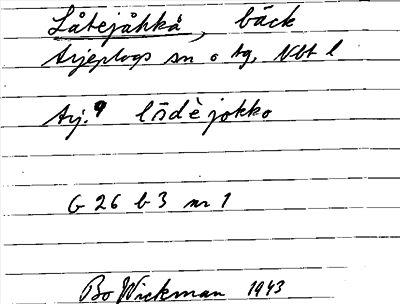 Låtejåhkå, bäck
Arjeplogs sn o tg, Nbt l
Arj. 9 lōdèjokko
G 26 b 3 nr 1
Bo Wickman 1943